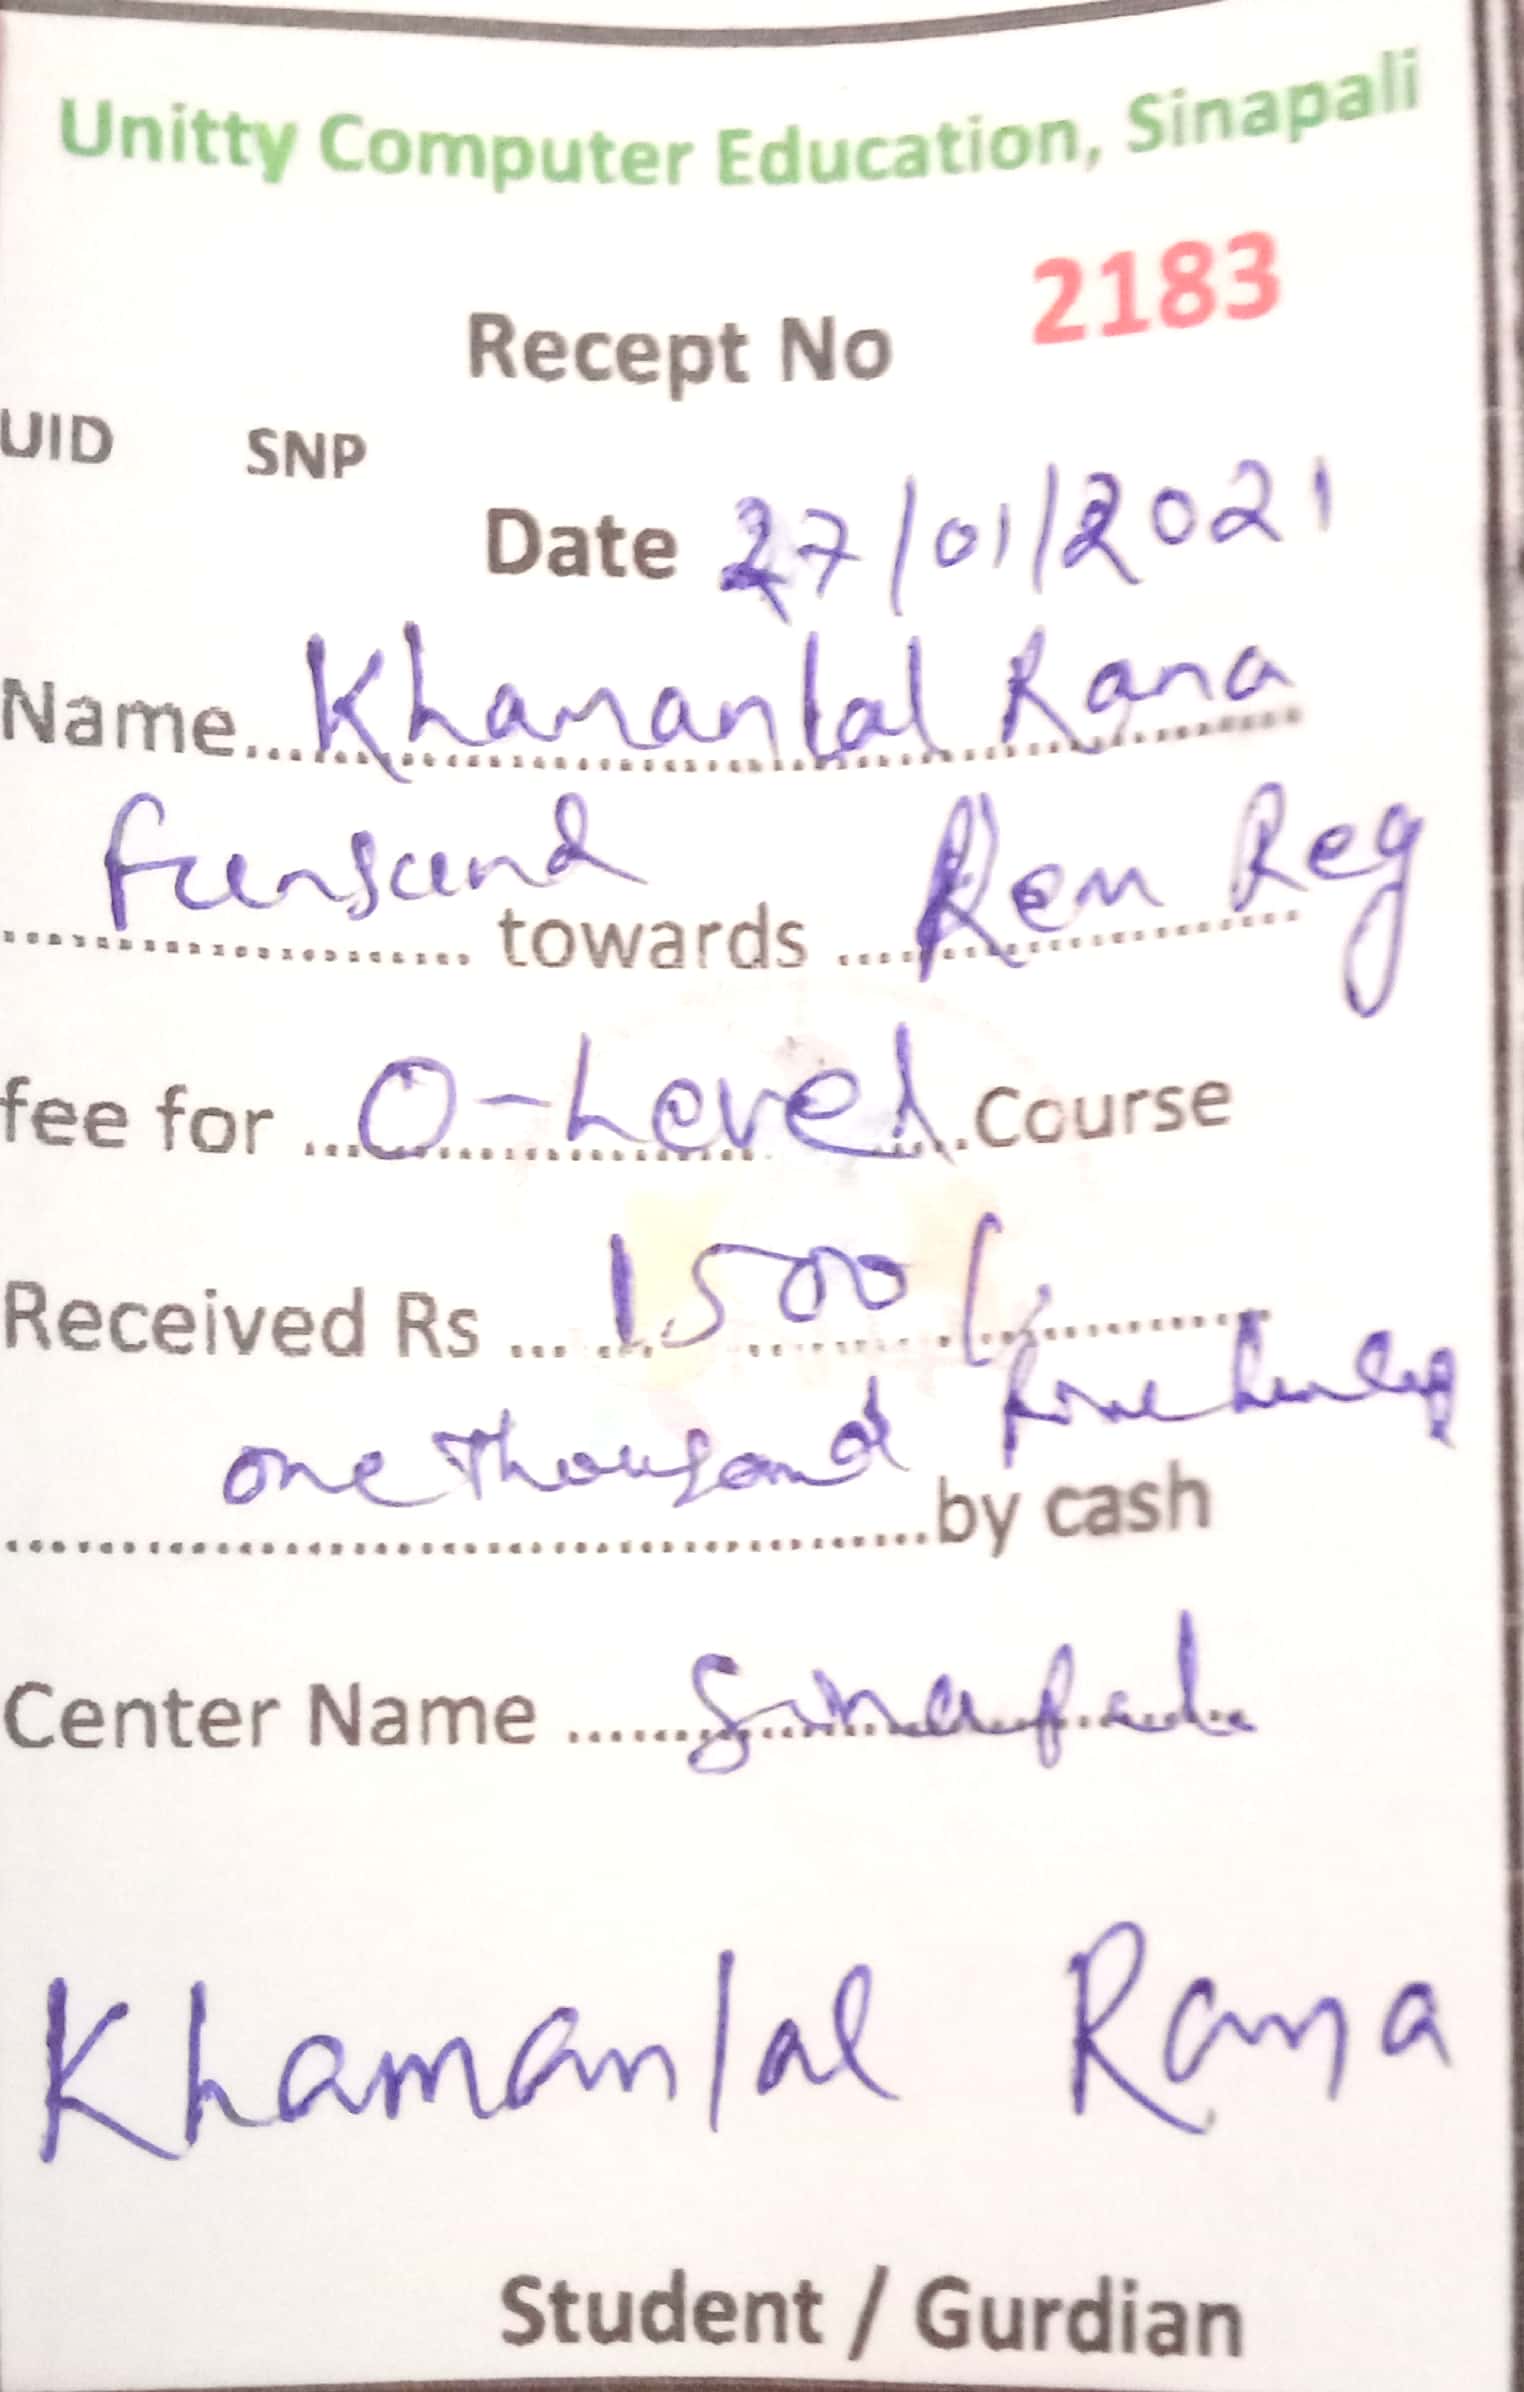 Unitty Computer Education, Sinapali
Recept No 2183
UID SNP
Date 27/01/2021
Name...Khamanlal Rana
.................... towards ....Rem Reg
fee for ...O-Level...Course
Received Rs ... 1500/-
one thousand five hundred
....................by cash
Center Name ......Sinapali
Khamanlal Rana
Student / Gurdian